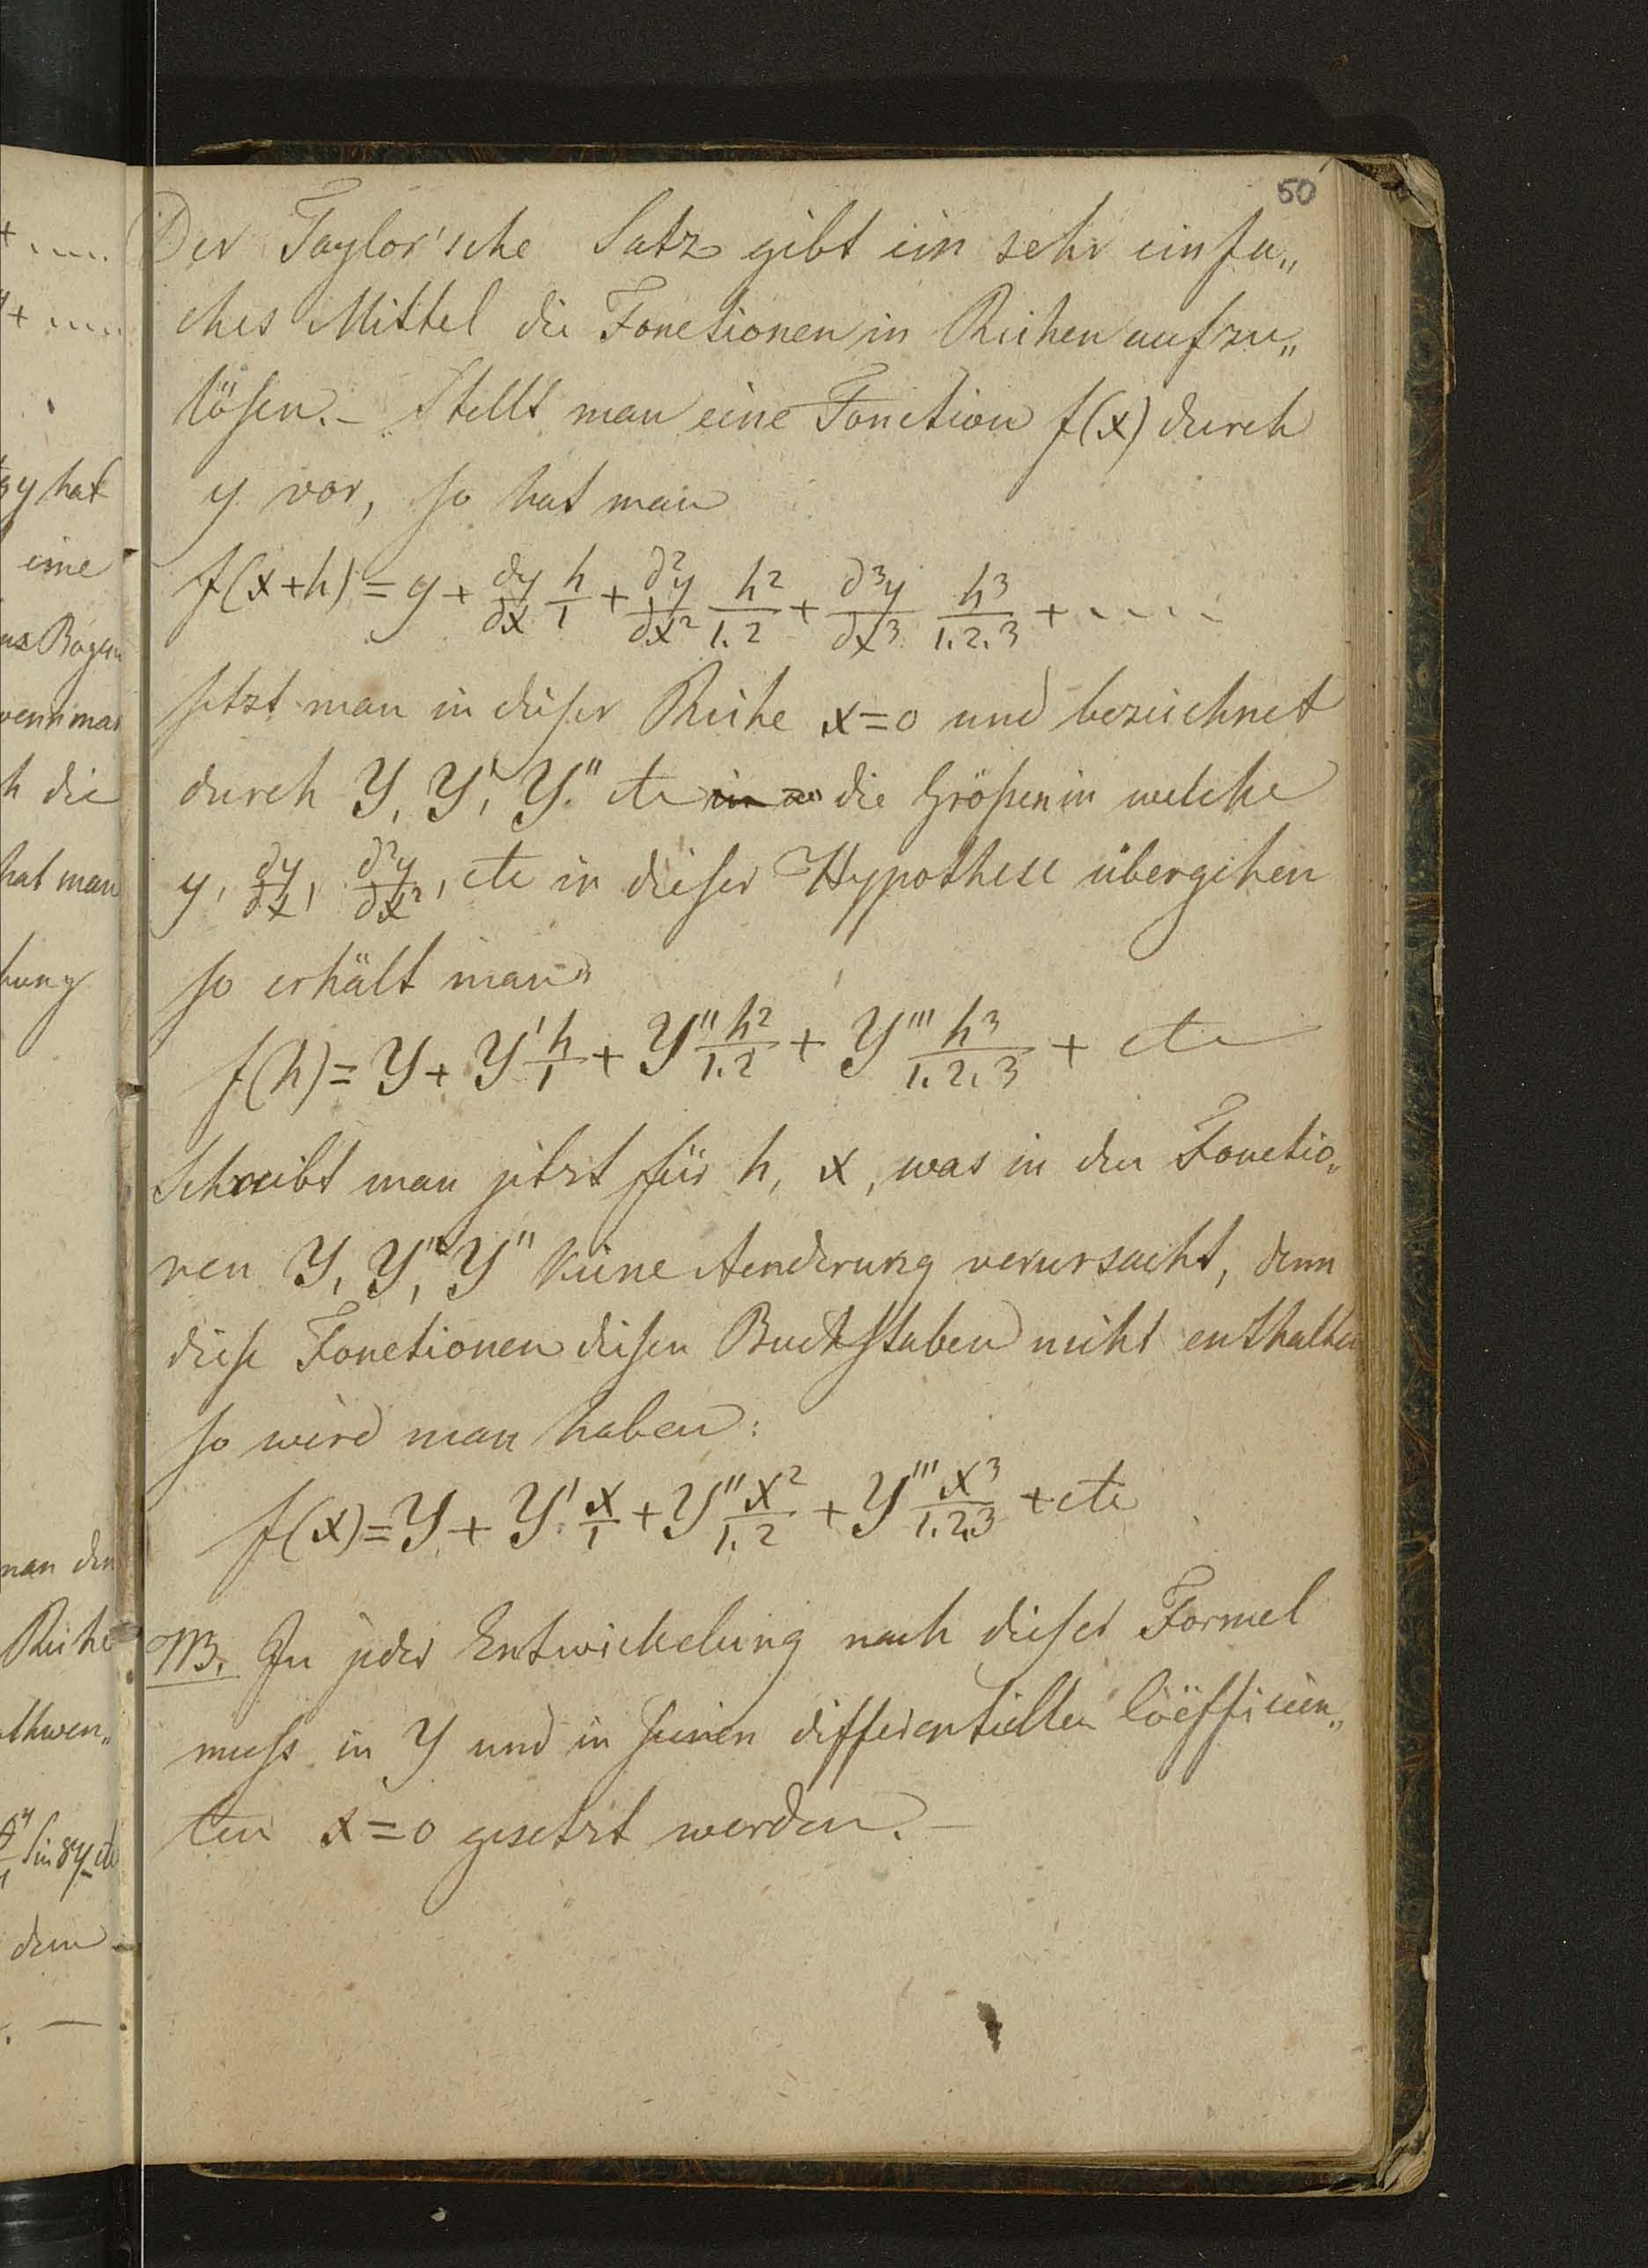 50
Der Taylor'sche Satz gibt ein sehr einfa„
ches Mittel die Fonctionen in Reihen aufzu„
lösen. – Stellt man eine Fonction f(x) durch
y vor, so hat man
f(x+h) = y + ∂y/∂x h/1 + ∂²y/∂x² h²/1.2 + ∂³y/∂x³ h³/1.2.3 + .....
setzt man in dieser Reihe x=0 und bezeichnet
durch Y, Y', Y'' etc die Größen in welche
y, ∂y/∂x, ∂²y/∂x², etc in dieser Hypothese übergehen
so erhält man
f(h) = Y + Y' h/1 + Y'' h²/1.2 + Y''' h³/1.2.3 + etc
Schreibt man jetzt für h, x, was in den Fonctio„
nen Y, Y', Y'' keine Aenderung verursacht, denn
diese Fonctionen diesen Buchstaben nicht enthalten
so wird man haben:
f(x) = Y + Y' x/1 + Y'' x²/1.2 + Y''' x³/1.2.3 + etc
NB. In jeder Entwickelung nach dieser Formel
muss in Y und in seinen differentiellen Coëfficien„
ten x=0 gesetzt werden. –